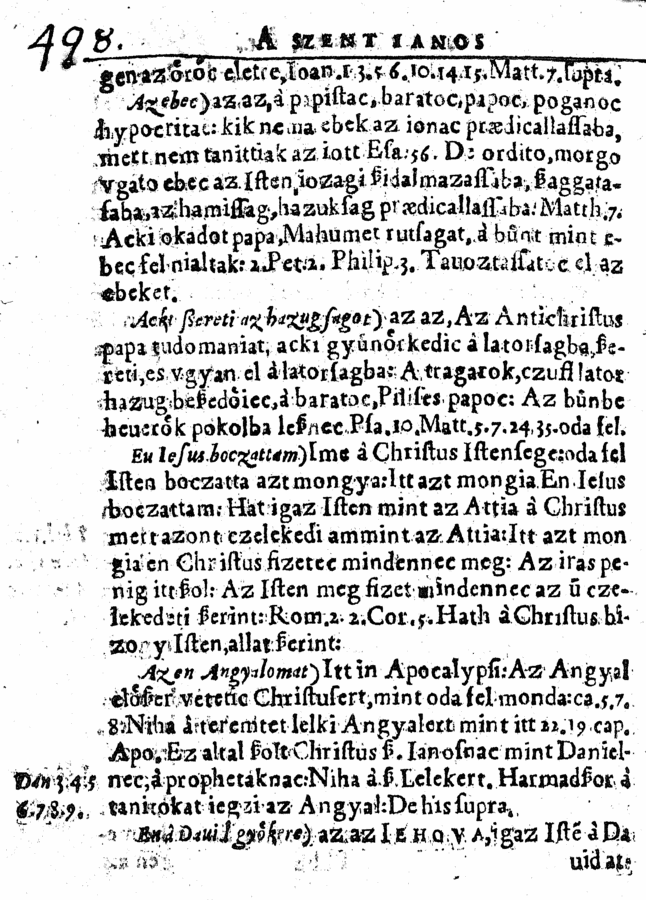 498. A SZENT IANOS
gen az ôrôc eletre, Ioan. 13. 5 6. 10. 14 15. Matt. 7. supra.
Az ebec) az az, â papistac, baratoc, papoc, poganoc
hypocritac: kik ne ma ebek az ionac prædicallassaba,
mert nem tanittiak az iott Esa. 56. De ordito, morgo
vgato ebec az Isten iozagi ßidalmazassaba, ßaggata-
saba, az hamissag, hazuksag prædicallassaba. Matth. 7.
Acki okadot papa, Mahumet rutsagat, â bûnt mint e-
bec fel nialtak: 2. Pet. 2. Philip. 3. Tauoztassatoc el az
ebeket.
Acki ßereti az hazugsagot) az az, Az Antichristus
papa tudomaniat, acki gyûnôrkedic â latorsagba, ße-
reti, es vgyan el â latorsagba: A tragarok, czufl lator
hazug beßedôiec, â baratoc, Pilises papoc: Az bûnbe
heuerôk pokolba leßnec. Psa. 10. Matt. 5. 7. 24. 35. oda fel.
En Iesus boczattam) Ime â Christus Istensege: oda fel
Isten boczatta azt mongya: Itt azt mongia En Iesus
boczattam: Hat igaz Isten mint az Attia â Christus
mert azont czelekedi ammint az Attia: Itt azt mon
gia en Christus fizetec mindennec meg: Az iras pe-
nig itt ßol: Az Isten meg fizet mindennec az û cze-
lekedeti ßerint: Rom. 2. 2. Cor. 5. Hath â Christus bi-
zony Isten, allat ßerint:
Az en Angyalomat) Itt in Apocalypsi: Az Angyal
elôßer vetetic Christusert, mint oda fel monda: ca. 5. 7.
8: Niha â teremtet lelki Angyalert mint itt 22. 19. cap.
Apo. Ez altal ßolt Christus ß. Ianosnac mint Daniel-
Dan 3. 4. 5 nec, â prophetaknac: Niha â ß. Lelekert. Harmadßor â
6. 7. 8. 9. tanitokat iegzi az Angyal: De his supra.
En â Dauid gyôkere) az az IEHOVA, igaz Istē â Da
uid at